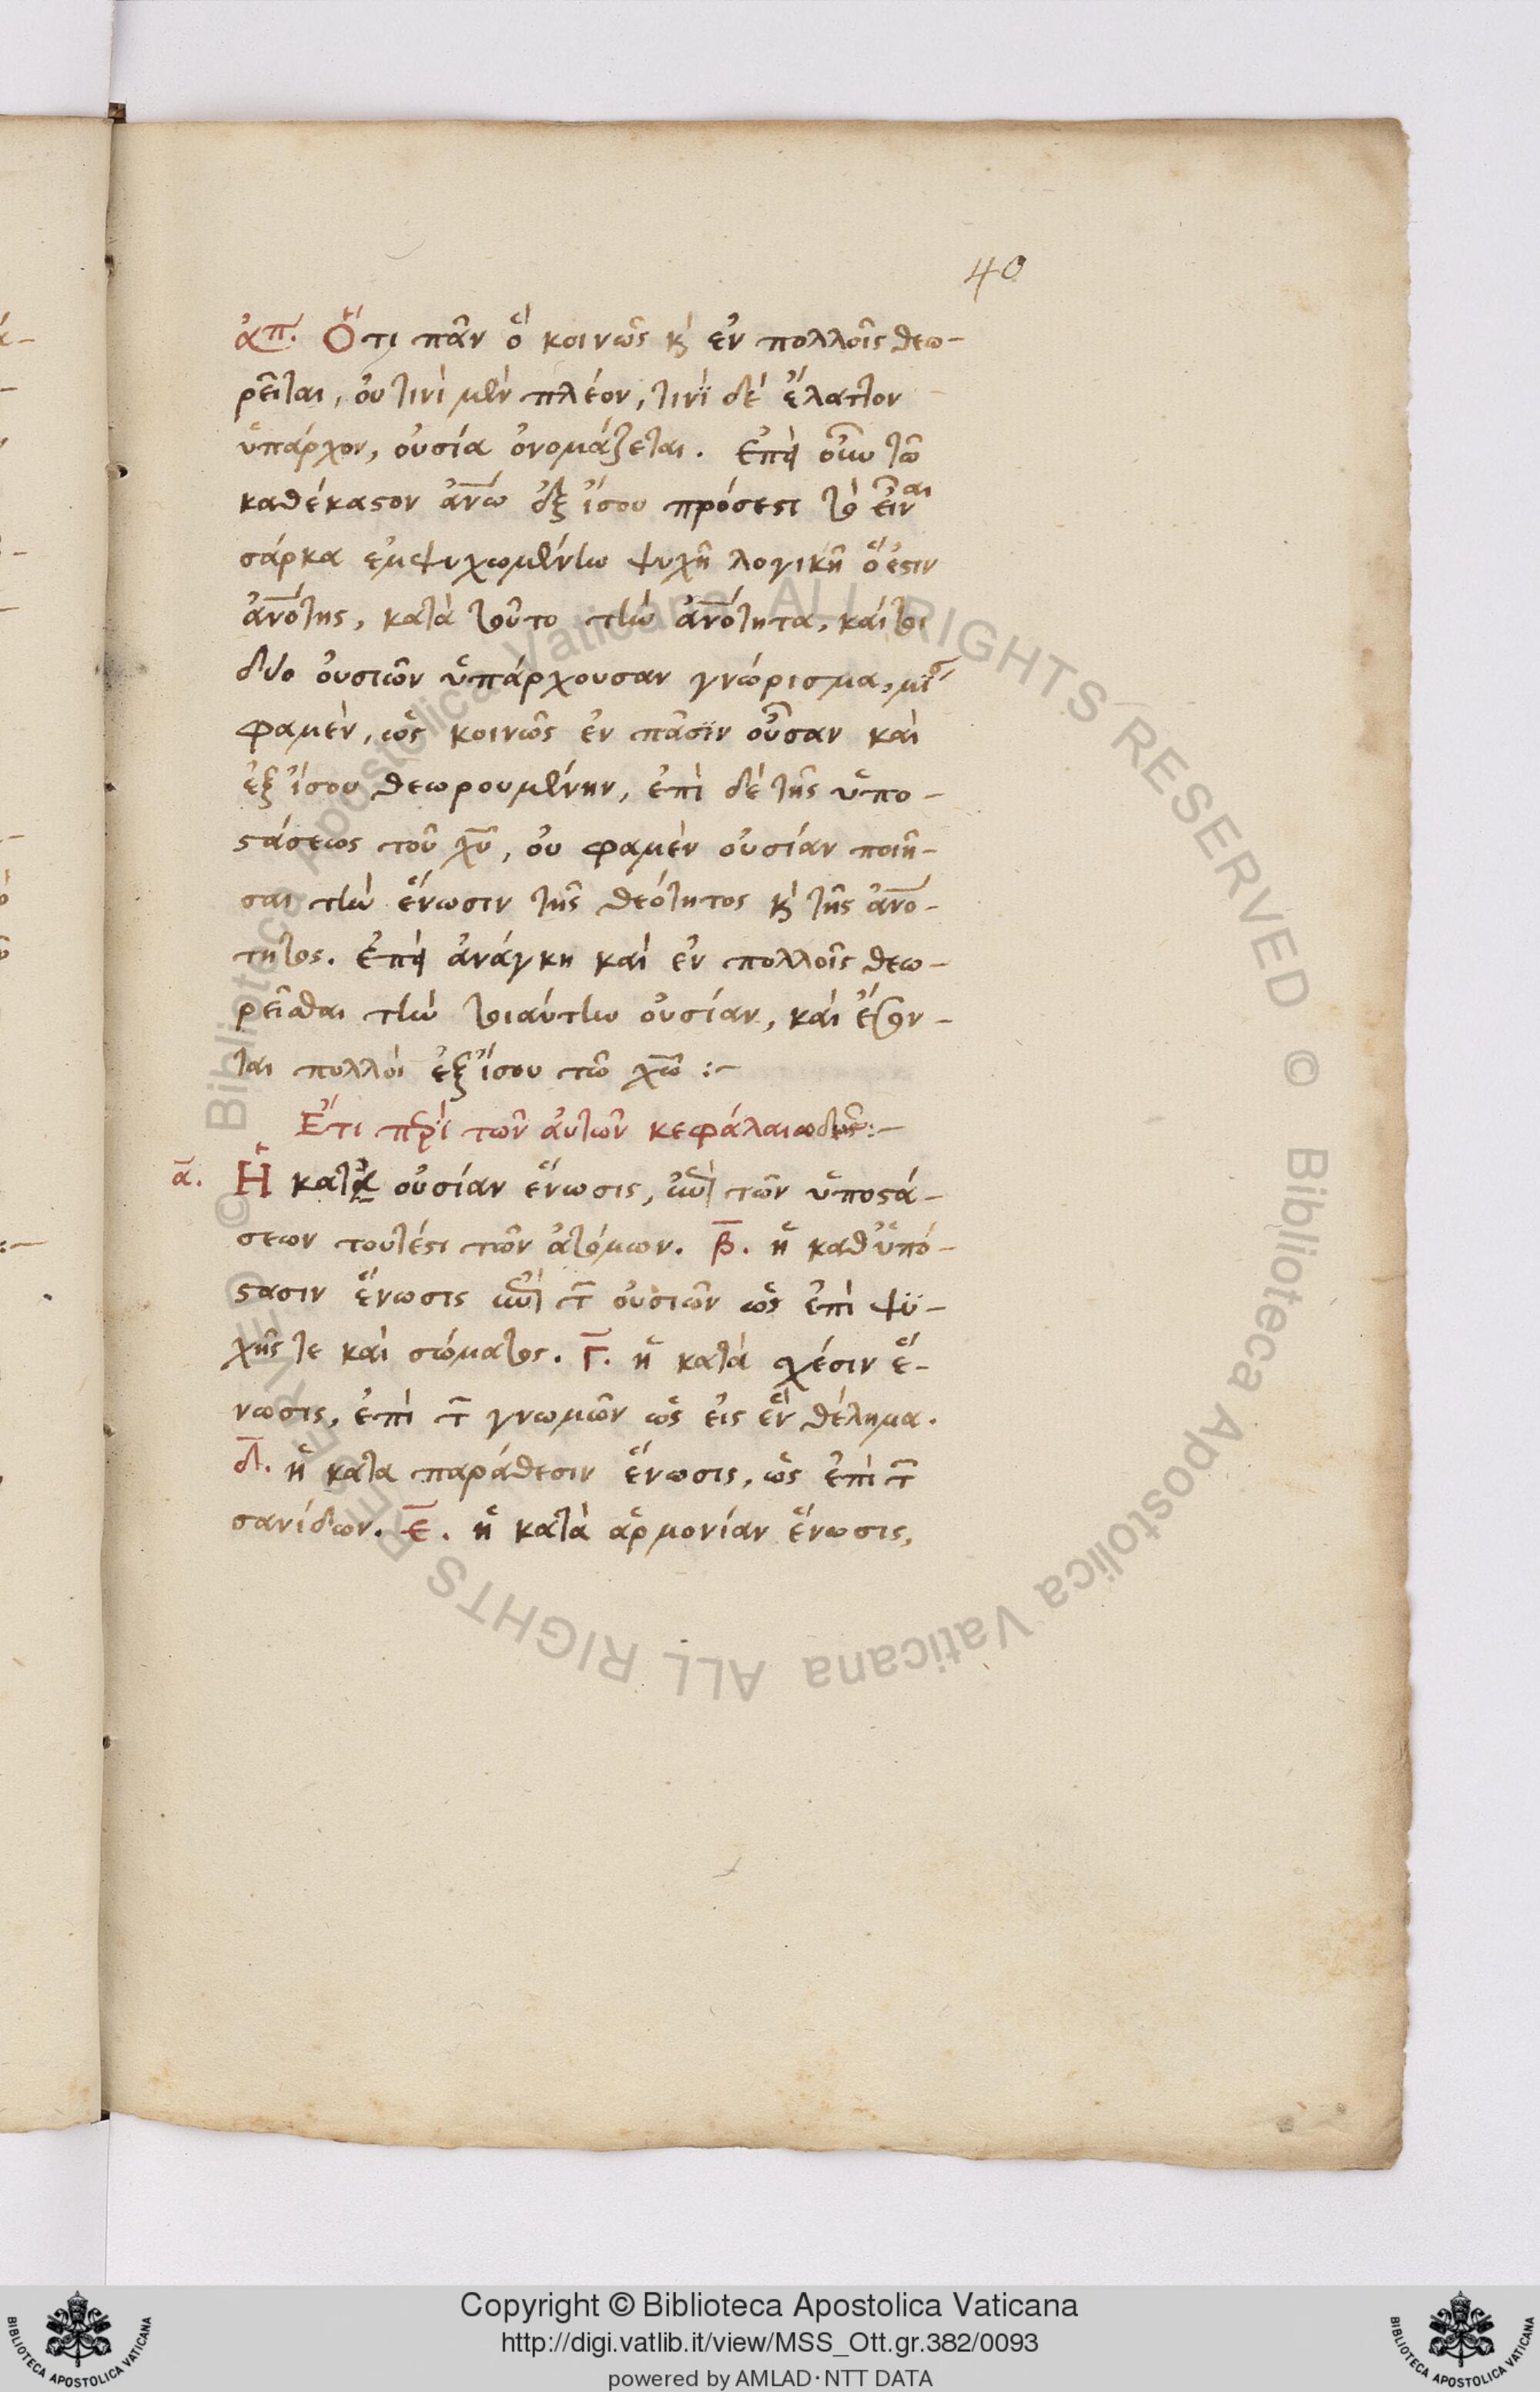 40
ἀπ. Ὅτι πᾶν ὃ κοινῶς κὶ ἐν πολλοῖς θεω-
ρεῖται, οὐ τινὶ μὲν πλέον, τινὶ δὲ ἔλαττον
ὑπάρχον, οὐσία ὀνομάζεται. Ἐπεὶ οὖν τῶ
καθέκαστον ἀνῶ ἐξ ἴσου πρόσεστι τὸ εἶναι
σάρκα ἐμψυχωμένην ψυχῆ λογικῆ ὅ ἐστιν
ἀνότης, κατὰ τοῦτο τὴν ἀνότητα, καίτοι
δύο οὐσιῶν ὑπάρχουσαν γνώρισμα,
φαμὲν, ὡς κοινῶς ἐν πᾶσϊν οὖσαν καὶ
ἐξ ἴσου θεωρουμένην, ἐπὶ δὲ τῆς ὑπο-
στάσεως τοῦ χυ, οὐ φαμὲν οὐσίαν ποιῆ-
σαι τὴν ἕνωσιν τῆς θεότητος κὶ τῆς ἀνό-
τητος. Ἐπεὶ ἀνάγκη καὶ ἐν πολλοῖς θεω-
ρεῖσθαι τὴν τοιαύτην οὐσίαν, καὶ ἔσον-
ται πολλοὶ ἐξ ἴσου τῶ χῶ :-
Ἔτι περὶ τῶν αὐτῶν κεφάλαιωδῶς:-
α. Ἡ κατὰ οὐσίαν ἕνωσις, ἐπὶ τῶν ὑποστά-
σεων τουτέστι τῶν ἀτόμων. β. ἡ καθ' ὑπό-
στασιν ἕνωσις ἐπὶ τ οὐσιῶν ὡς ἐπὶ ψϋ-
χῆς τε καὶ σώματος. Γ. ἡ κατὰ σχέσιν ἕ-
νωσις, ἐπὶ τ γνωμῶν ὡς εἰς ἓν θέλημα.
δ. ἡ κατα παράθεσιν ἕνωσις, ὡς ἐπὶ τ
σανίδων. ε. ἡ κατὰ ἁρμονίαν ἕνωσις,
Copyright © Biblioteca Apostolica Vaticana
http://digi.vatlib.it/view/MSS_Ott.gr.382/0093
powered by AMLAD·NTT DATA
© Biblioteca Apostolica Vaticana ALL RIGHTS RESERVED © Biblioteca Apostolica Vaticana ALL RIGHTS RESERVED
BIBLIOTECA APOSTOLICA VATICANA
BIBLIOTECA APOSTOLICA VATICANA